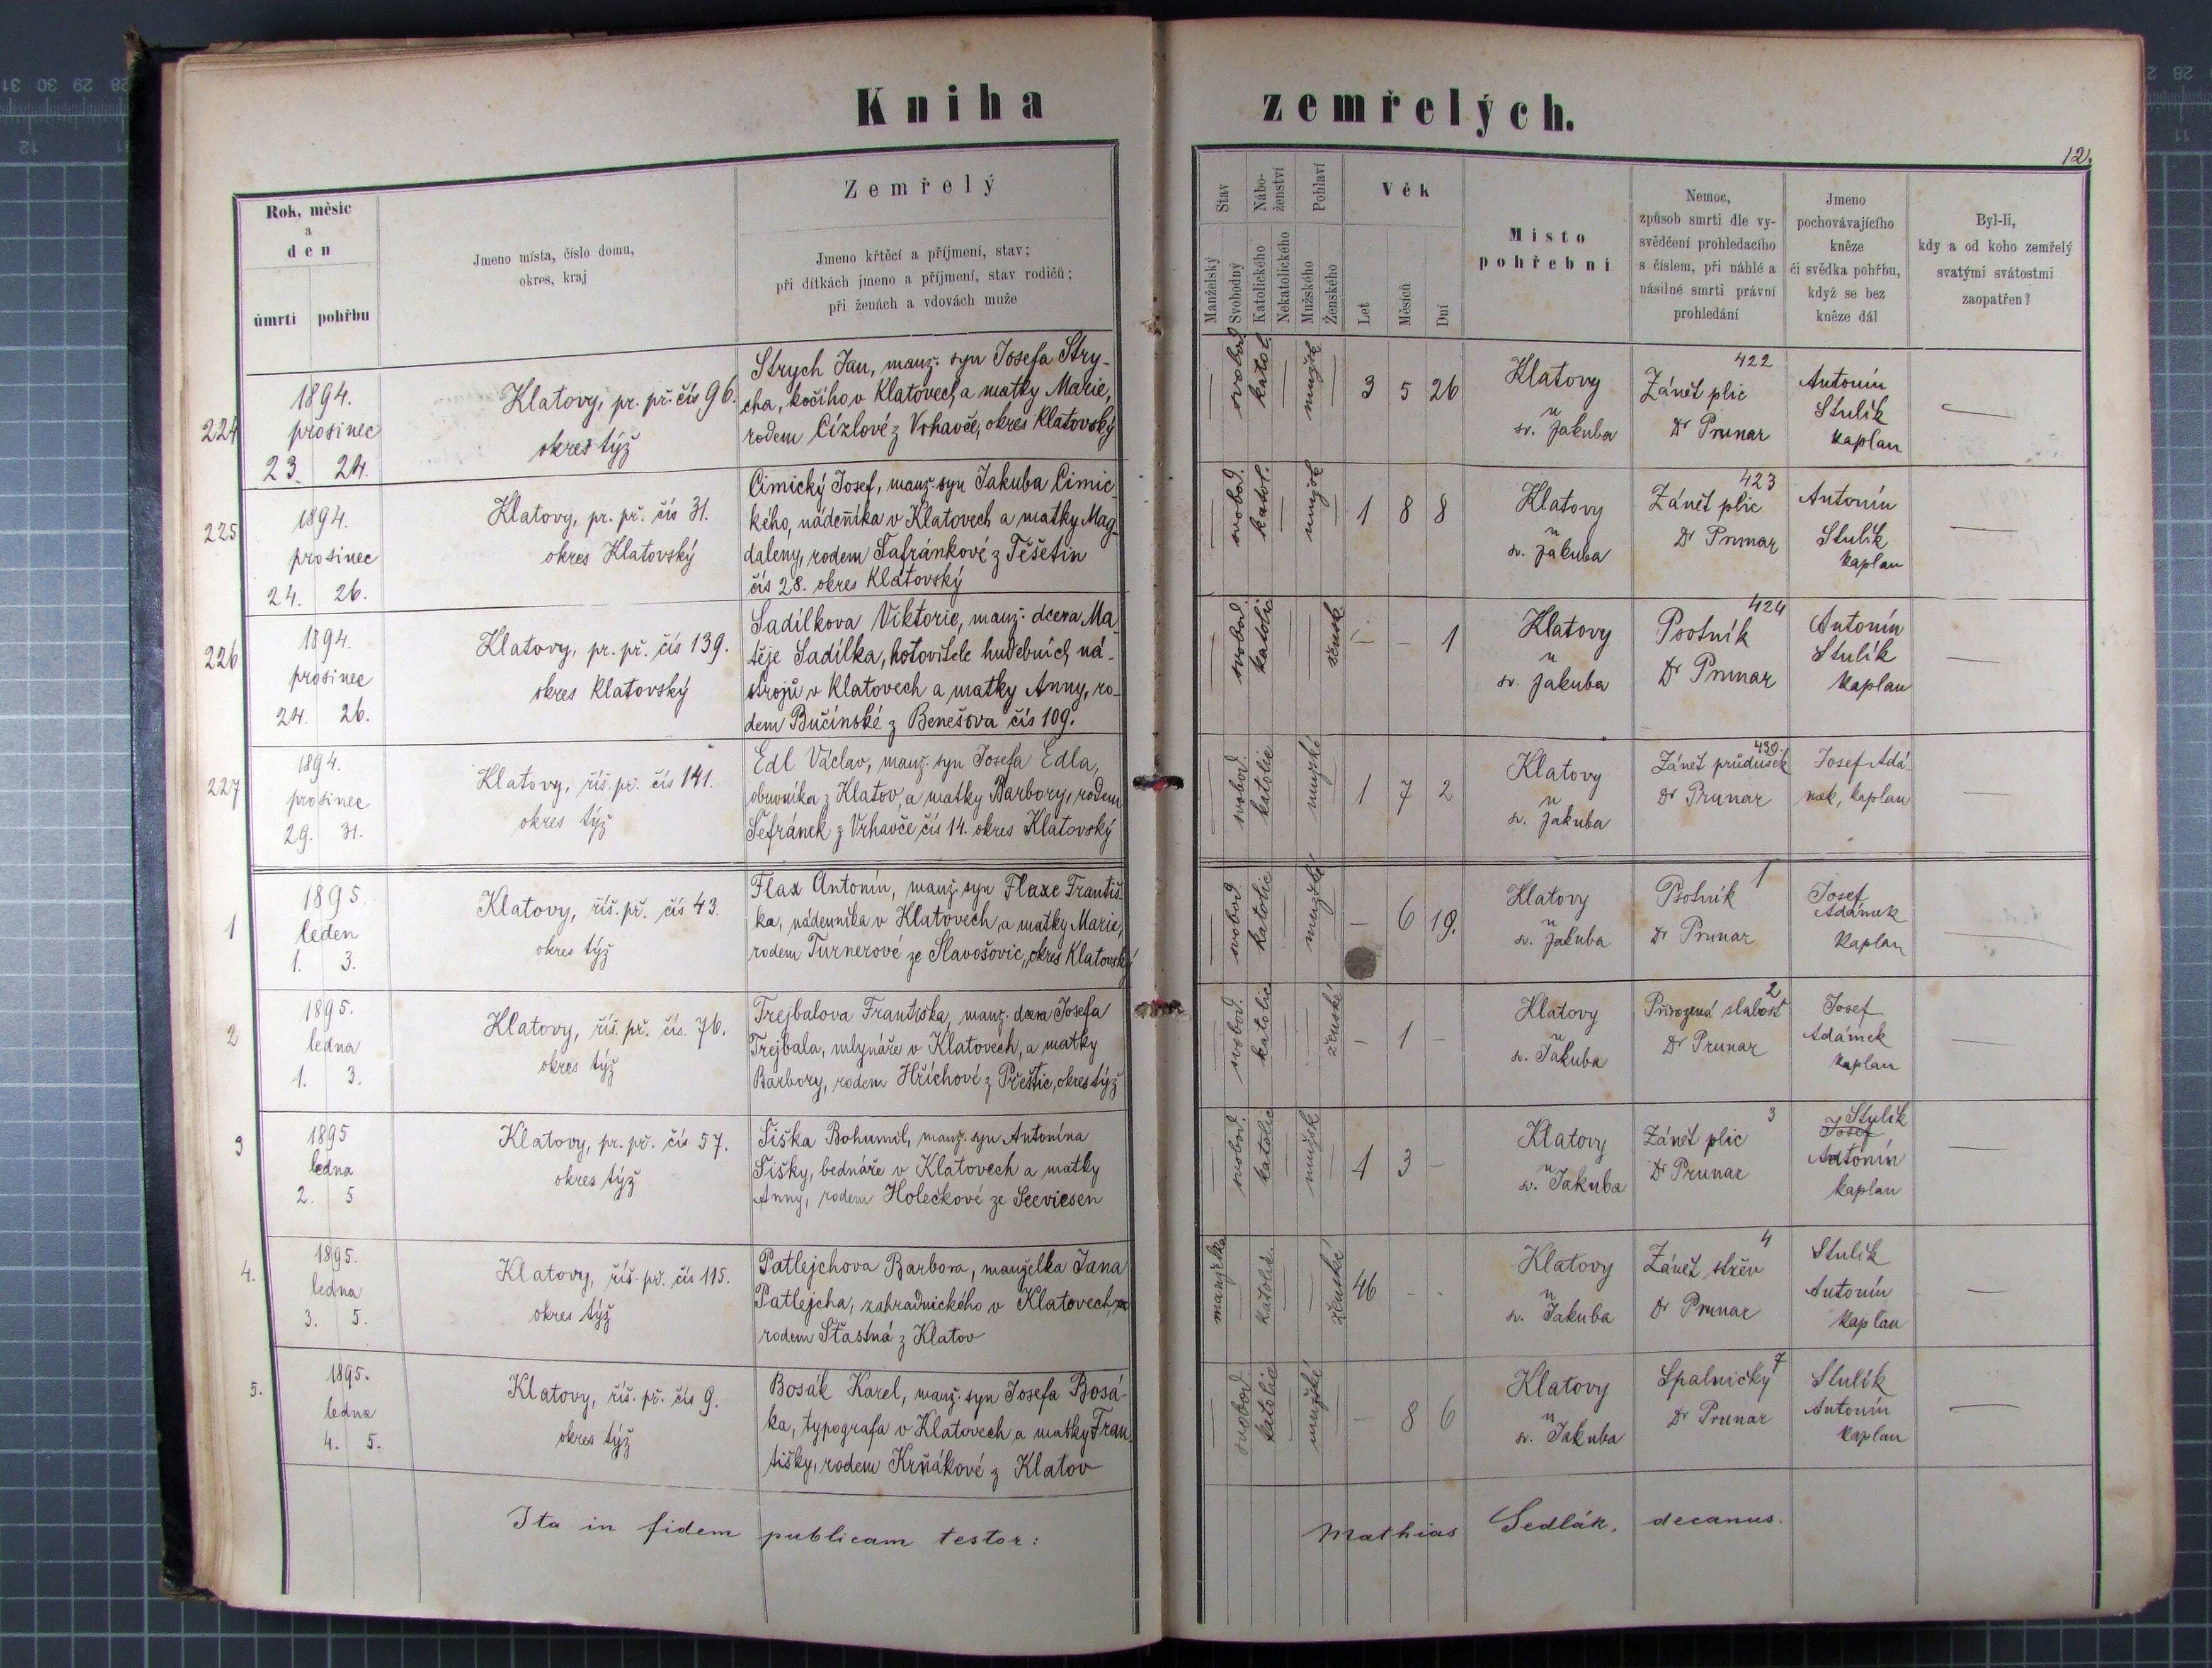 Kniha zemřelých.
12.
Rok, měsíc
a
den
úmrtí pohřbu
Jmeno místa, číslo domu,
okres, kraj
Zemřelý
Jmeno křtěcí a příjmení, stav;
při dítkách jmeno a příjmení, stav rodičů;
při ženách a vdovách muže
Stav
Manželský
Svobodný
Nábo-
ženství
Katolického
Nekatolického
Pohlaví
Mužského
Ženského
Věk
Let
Měsíců
Dní
Místo
pohřební
Nemoc,
způsob smrti dle vy-
svědčení prohledacího
s číslem, při náhlé a
násilné smrti právní
prohledání
Jmeno
pochovávajícího
kněze
či svědka pohřbu,
když se bez
kněze dál
Byl-li,
kdy a od koho zemřelý
svatými svátostmi
zaopatřen?
224
1894.
prosinec
23. 24.
Klatovy, pr. př. čís 96.
okres týž
Strych Jan, manž. syn Josefa Stry-
cha, kočího v Klatovech a matky Marie,
rodem Cízlové z Vrhavče, okres Klatovský
svobod. katol. mužsk
3 5 26
Klatovy
u
sv. Jakuba
422
Zánět plic
Dr Prunar
Antonín
Stulík
kaplan
225
1894.
prosinec
24. 26.
Klatovy, pr. př. čís 31.
okres Klatovský
Cimický Josef, manž. syn Jakuba Cimic-
kého, nádeníka v Klatovech a matky Mag-
daleny, rodem Šafránkové z Těšetin
čís 28. okres Klatovský
svobod. katol. mužsk
1 8 8
Klatovy
u
sv. Jakuba
423
Zánět plic
Dr Prunar
Antonín
Stulík
kaplan
226
1894.
prosinec
24. 26.
Klatovy, pr. př. čís 139.
okres Klatovský
Sadílkova Viktorie, manž. dcera Ma-
těje Sadílka, hotovitele hudebních ná-
strojů v Klatovech a matky Anny, ro-
dem Bučínské z Benešova čís 109.
svobod. katolic žensk
– – 1
Klatovy
u
sv. Jakuba
424
Psotník
Dr Prunar
Antonín
Stulík
kaplan
227
1894.
prosinec
29. 31.
Klatovy, říš. př. čís 141.
okres týž
Edl Václav, manž. syn Josefa Edla,
obuvníka z Klatov, a matky Barbory, rodem
Šefránek z Vrhavče čís 14. okres Klatovský
svobod. katolic mužské
1 7 2
Klatovy
u
sv. Jakuba
430.
Zánět průdušek
Dr Prunar
Josef Adá-
mek, kaplan
1
1895.
leden
1. 3.
Klatovy, říš. př. čís 43.
okres týž
Flax Antonín, manž. syn Flaxe Františ-
ka, nádenníka v Klatovech, a matky Marie,
rodem Turnerové ze Slavošovic, okres Klatovský
svobod. katolic mužské
– 6 19.
Klatovy
u
sv. Jakuba
1
Psotník
Dr Prunar
Josef
Adámek
kaplan
2
1895.
ledna
1. 3.
Klatovy, říš. př. čís. 76.
okres týž
Trejbalova Františka, manž. dcera Josefa
Trejbala, mlynáře v Klatovech, a matky
Barbory, rodem Hříchové z Přeštic, okres týž
svobod. katolic ženské
– 1 –
Klatovy
u
sv. Jakuba
2
Přirozená slabost
Dr Prunar
Josef
Adámek
kaplan
3
1895
ledna
2. 5
Klatovy, pr. př. čís 57.
okres týž
Šiška Bohumil, manž. syn Antonína
Šišky, bednáře v Klatovech a matky
Anny, rodem Holečkové ze Seeviesen
svobod. katolic mužsk
1 3 –
Klatovy
u
sv. Jakuba
3
Zánět plic
Dr Prunar
Stulík
Josef
Antonín
kaplan
4.
1895.
ledna
3. 5.
Klatovy, říš. př. čís 115.
okres týž
Patlejchova Barbora, manželka Jana
Patlejcha, zahradnického v Klatovech, a
rodem Šťastná z Klatov
manželka katolic. ženské
46 – –
Klatovy
u
sv. Jakuba
4
Zánět střev
Dr Prunar
Stulík
Antonín
kaplan
5.
1895.
ledna
4. 5.
Klatovy, říš. př. čís 9.
okres týž
Bosák Karel, manž. syn Josefa Bosá-
ka, typografa v Klatovech a matky Fran-
tišky, rodem Krňákové z Klatov
svobod katolic mužské
– 8 6
Klatovy
u
sv. Jakuba
7
Spalničky
Dr Prunar
Stulík
Antonín
kaplan
Ita in fidem publicam testor: Mathias Sedlák, decanus.